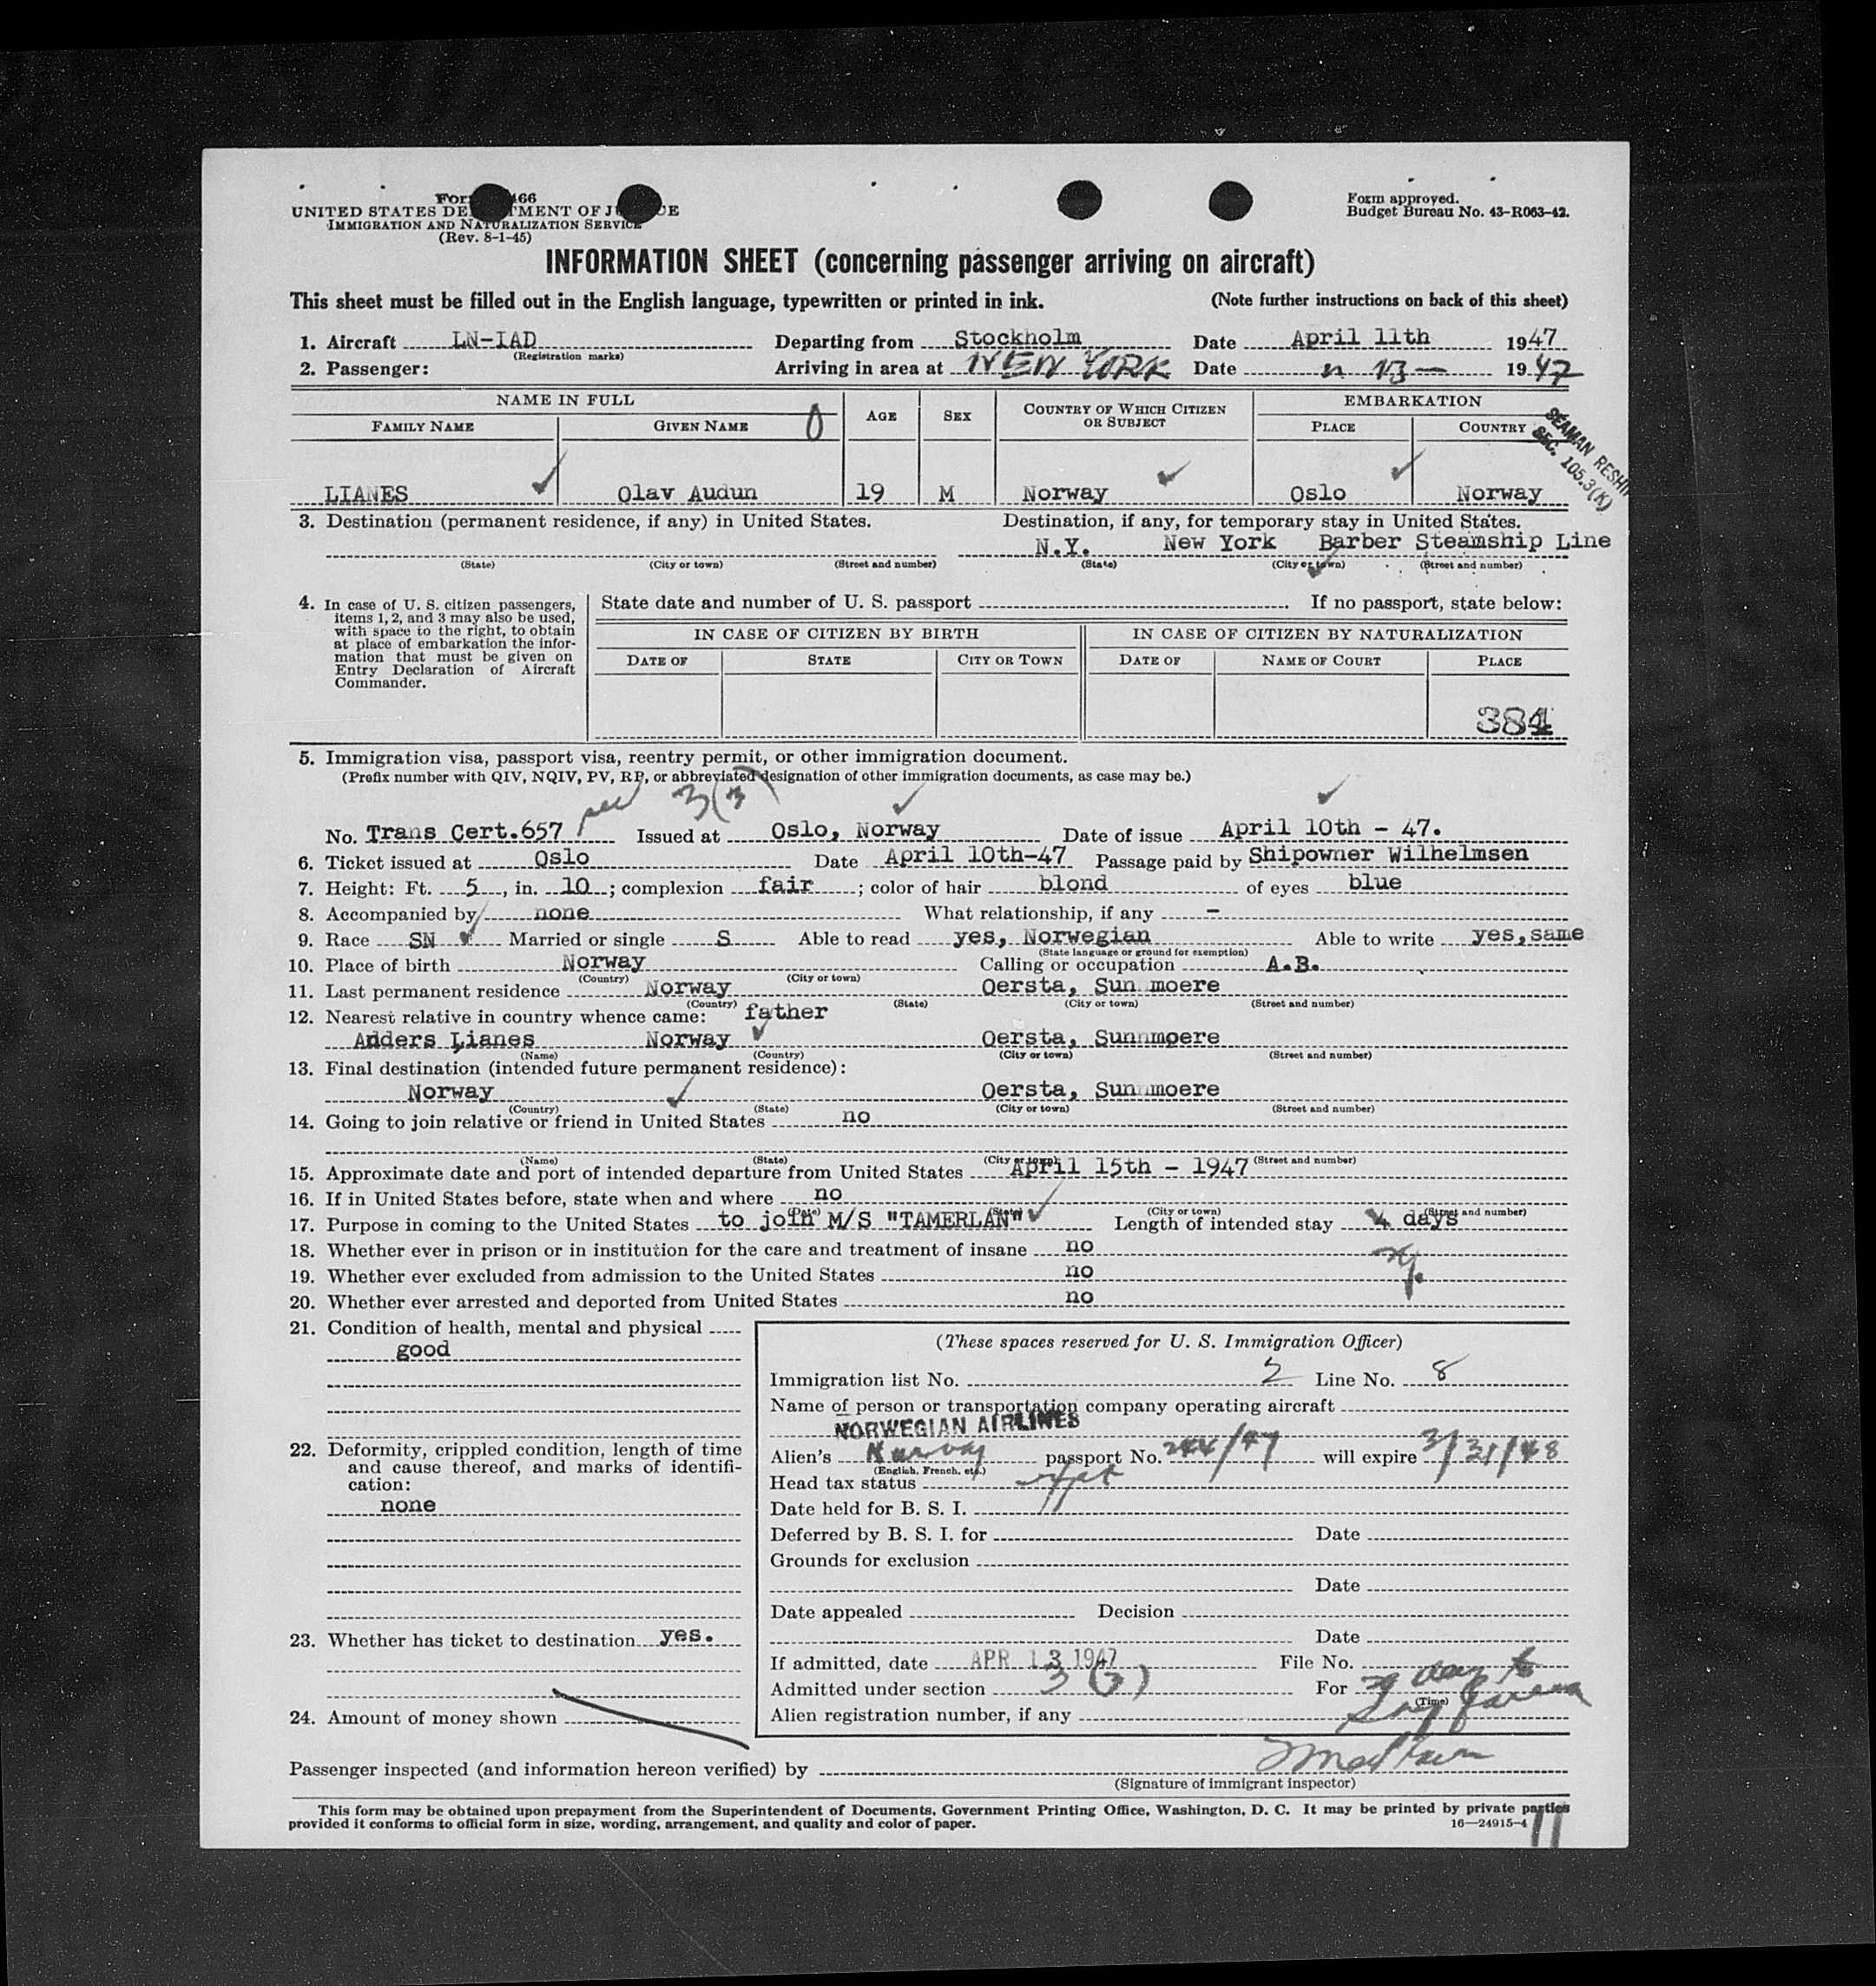 Form 466
UNITED STATES DEPARTMENT OF JUSTICE
IMMIGRATION AND NATURALIZATION SERVICE
(Rev. 8-1-45)
Form approved.
Budget Bureau No. 43-R063-42.
INFORMATION SHEET (concerning passenger arriving on aircraft)
This sheet must be filled out in the English language, typewritten or printed in ink. (Note further instructions on back of this sheet)
1. Aircraft LN-IAD Departing from Stockholm Date April 11th 1947
(Registration marks)
2. Passenger: Arriving in area at NEW YORK Date " 13 — 1947
NAME IN FULL AGE SEX COUNTRY OF WHICH CITIZEN OR SUBJECT EMBARKATION
FAMILY NAME GIVEN NAME PLACE COUNTRY
SEAMAN RESHIP
SEC. 105.3(K)
LIANES Olav Audun 19 M Norway Oslo Norway
3. Destination (permanent residence, if any) in United States. Destination, if any, for temporary stay in United States.
N.Y. New York Barber Steamship Line
(State) (City or town) (Street and number) (State) (City or town) (Street and number)
4. In case of U. S. citizen passengers, items 1, 2, and 3 may also be used, with space to the right, to obtain at place of embarkation the information that must be given on Entry Declaration of Aircraft Commander.
State date and number of U. S. passport . If no passport, state below:
IN CASE OF CITIZEN BY BIRTH IN CASE OF CITIZEN BY NATURALIZATION
DATE OF STATE CITY OR TOWN DATE OF NAME OF COURT PLACE
384
5. Immigration visa, passport visa, reentry permit, or other immigration document.
(Prefix number with QIV, NQIV, PV, RP, or abbreviated designation of other immigration documents, as case may be.)
3(3)
No. Trans Cert.657 Issued at Oslo, Norway Date of issue April 10th - 47.
6. Ticket issued at Oslo Date April 10th-47 Passage paid by Shipowner Wilhelmsen
7. Height: Ft. 5, in. 10; complexion fair; color of hair blond of eyes blue
8. Accompanied by none What relationship, if any -
9. Race SN Married or single S Able to read yes, Norwegian Able to write yes,same
(State language or ground for exemption)
10. Place of birth Norway Calling or occupation A.B.
(Country) (City or town)
11. Last permanent residence Norway Oersta, Sunnmoere
(Country) (State) (City or town) (Street and number)
12. Nearest relative in country whence came: father
Anders Lianes Norway Oersta, Sunnmoere
(Name) (Country) (City or town) (Street and number)
13. Final destination (intended future permanent residence):
Norway Oersta, Sunnmoere
(Country) (State) (City or town) (Street and number)
14. Going to join relative or friend in United States no
(Name) (State) (City or town) (Street and number)
15. Approximate date and port of intended departure from United States April 15th - 1947
16. If in United States before, state when and where no
(Date) (State) (City or town) (Street and number)
17. Purpose in coming to the United States to join M/S "TAMERLAN" Length of intended stay 4 days
18. Whether ever in prison or in institution for the care and treatment of insane no
19. Whether ever excluded from admission to the United States no
20. Whether ever arrested and deported from United States no
21. Condition of health, mental and physical
good
22. Deformity, crippled condition, length of time and cause thereof, and marks of identification:
none
23. Whether has ticket to destination yes.
24. Amount of money shown
(These spaces reserved for U. S. Immigration Officer)
Immigration list No. 2 Line No. 8
Name of person or transportation company operating aircraft
NORWEGIAN AIRLINES
Alien's Norway passport No. 244/47 will expire 3/31/48
(English, French, etc.)
Head tax status
Date held for B. S. I.
Deferred by B. S. I. for Date
Grounds for exclusion
Date
Date appealed Decision
Date
If admitted, date APR 13 1947 File No.
Admitted under section 3 (3) For
(Time)
Alien registration number, if any
Passenger inspected (and information hereon verified) by
(Signature of immigrant inspector)
This form may be obtained upon prepayment from the Superintendent of Documents, Government Printing Office, Washington, D. C. It may be printed by private parties
provided it conforms to official form in size, wording, arrangement, and quality and color of paper. 16—24915-4
11